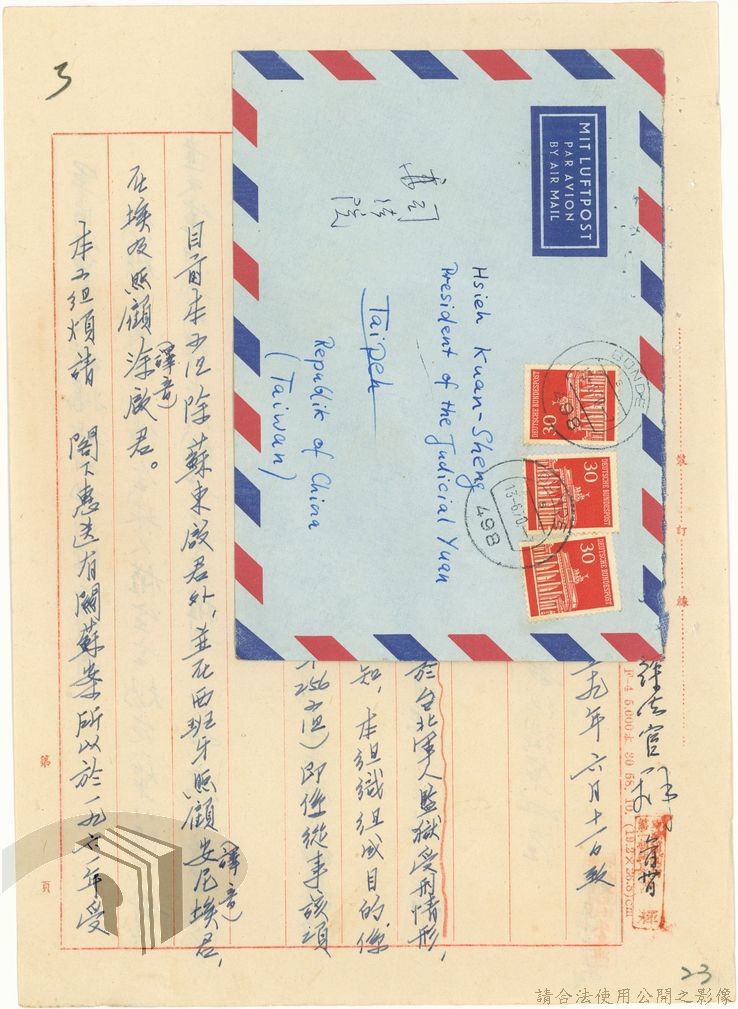 3
MIT LUFTPOST
PAR AVION
BY AIR MAIL
司法院
Hsieh Kuan-Sheng
President of the Judicial Yuan
Taipeh
Republik of China
(Taiwan)
GÜNDE
498
DEUTSCHE BUNDESPOST
30
13.-6.70
498
DEUTSCHE BUNDESPOST
30
DEUTSCHE BUNDESPOST
30
裝訂線
九年六月十一日致
於台北軍人監獄受刑情形,
知,本組織組成目的,係
256小組)即係從事該項
目前本小組除蘇東啟君外,並在西班牙照顧安尼埃君,
(譯音)
在埃及照顧涂啟君。
(譯音)
本小組煩請 閣下惠送有關蘇案所以於一九六一年受
第 頁
23
請合法使用公開之影像